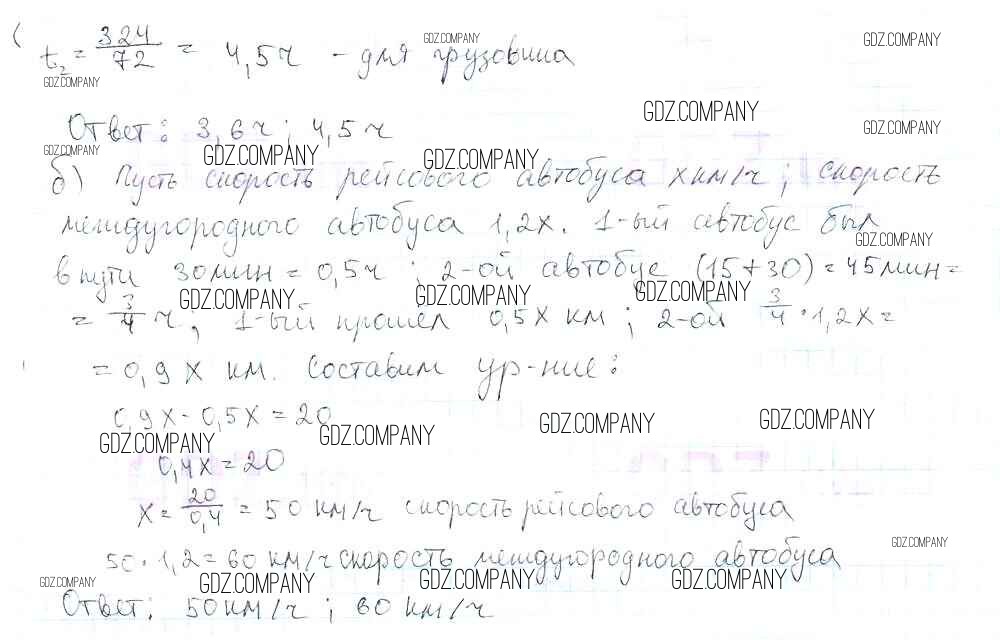 t₂ = 324/72 = 4,5ч – для грузовика
GDZ.COMPANY GDZ.COMPANY GDZ.COMPANY
Ответ: 3,6ч; 4,5ч
GDZ.COMPANY GDZ.COMPANY
GDZ.COMPANY GDZ.COMPANY GDZ.COMPANY
б) Пусть скорость рейсового автобуса x км/ч; скорость
междугородного автобуса 1,2x. 1-ый автобус был
GDZ.COMPANY
в пути 30 мин = 0,5ч; 2-ой автобус (15+30) = 45 мин =
GDZ.COMPANY GDZ.COMPANY GDZ.COMPANY
= 3/4 ч; 1-ый прошел 0,5x км; 2-ой 3/4 · 1,2x =
= 0,9x км. Составим ур-ние:
0,9x - 0,5x = 20
GDZ.COMPANY GDZ.COMPANY GDZ.COMPANY GDZ.COMPANY
0,4x = 20
x = 20/0,4 = 50 км/ч скорость рейсового автобуса
50 · 1,2 = 60 км/ч скорость междугородного автобуса
GDZ.COMPANY
GDZ.COMPANY GDZ.COMPANY GDZ.COMPANY GDZ.COMPANY
Ответ: 50 км/ч; 60 км/ч